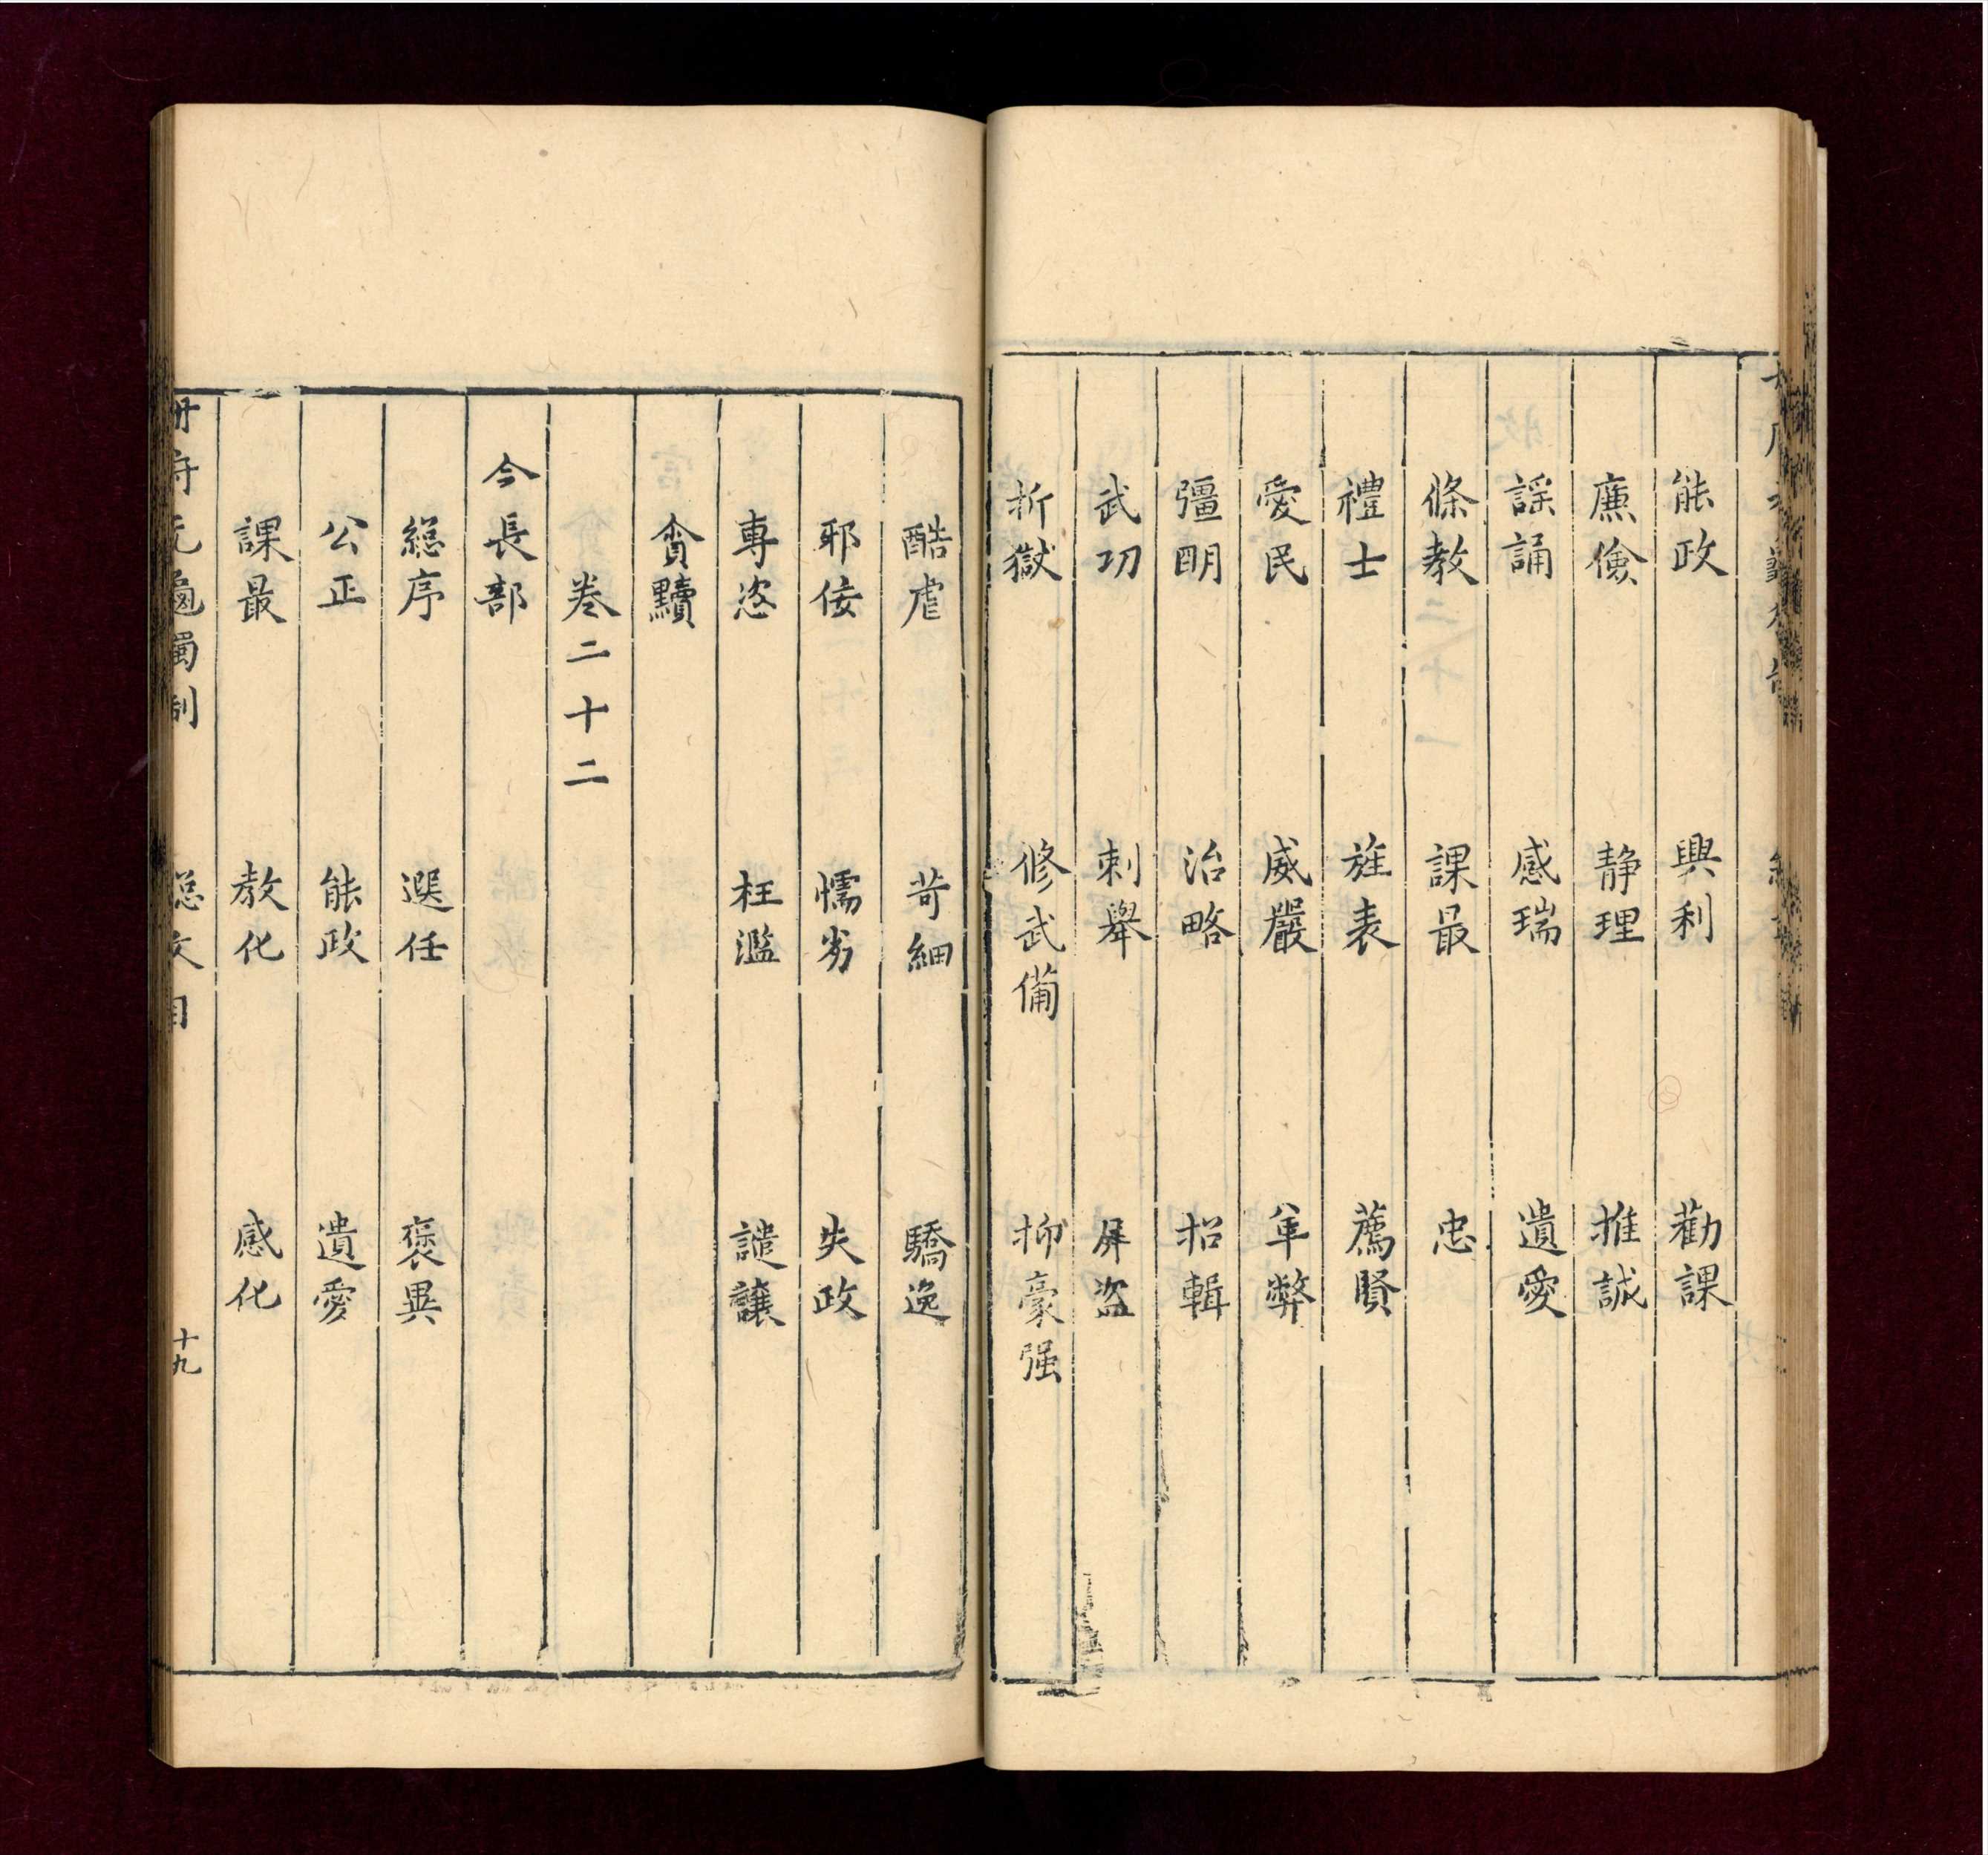 能政　興利　勸課
廉儉　静理　推誠
謡誦　感瑞　遺愛
條教　課最　忠
禮士　旌表　薦賢
愛民　威嚴　革弊
彊明　治略　招輯
武功　刺舉　屏盗
折獄　修武備　抑豪强
酷虐　苛細　驕逸
邪佞　懦劣　失政
專恣　枉濫　譴讓
貪黷
卷二十二
令長部
総序　選任　褒異
公正　能政　遺愛
課最　教化　感化
册府元龜獨制　総文目　十九